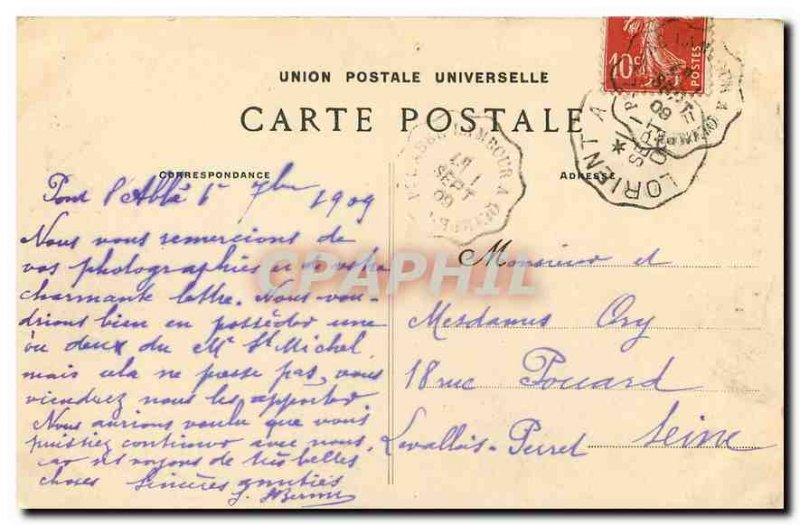 UNION POSTALE UNIVERSELLE
CARTE POSTALE
CORRESPONDANCE
ADRESSE
10c
POSTES
LORIENT A
SEPT
09
Pont l'Abbé 1r 7bre 1909
Nous vous remercions de
vos photographies et de votre
charmante lettre. Nous vou-
drions bien en posséder une
ou deux du Mt St Michel
mais cela ne presse pas, vous
viendrez nous les apporter
Nous aurions voulu que vous
puissiez continuer avec nous,
car ns voyons de très belles
choses Sincères amitiés
Monsieur et
Mesdames Ory
18 rue Pouard
Levallois-Perret
Seine
CPAPHIL